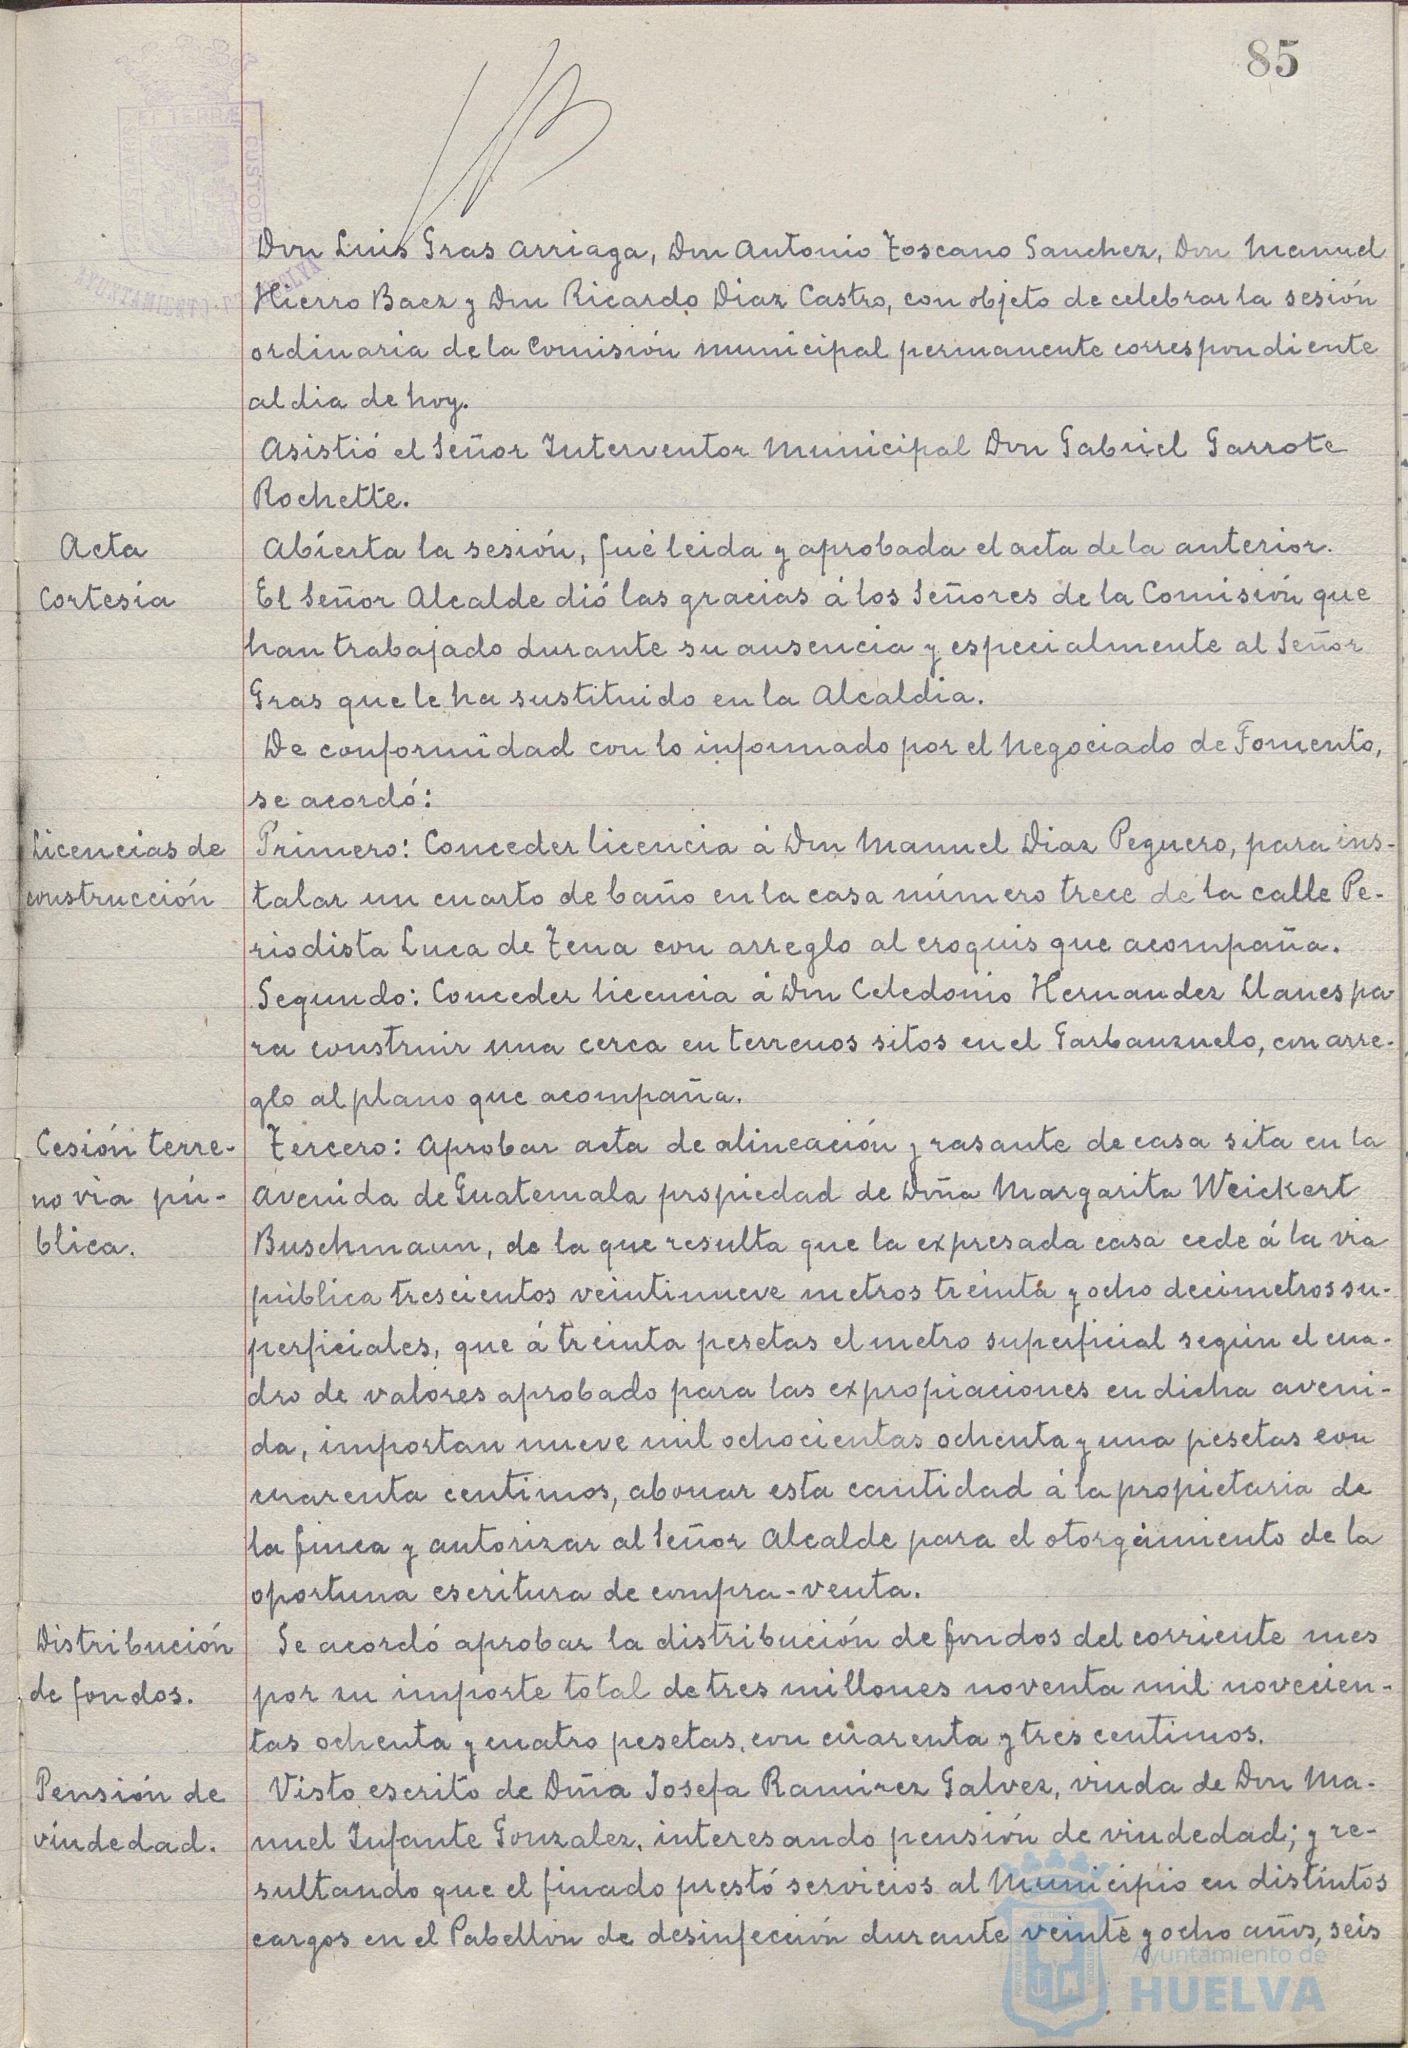 85
PORTUS MARIS ET TERRAE CUSTODIA
AYUNTAMIENTO DE HUELVA
Don Luis Gras Arriaga, Don Antonio Toscano Sanchez, Don Manuel
Hierro Baez y Don Ricardo Diaz Castro, con objeto de celebrar la sesión
ordinaria de la Comisión municipal permanente correspondiente
al dia de hoy.
Asistió el Señor Interventor Municipal Don Gabriel Garrote
Rochette.
Acta
Abierta la sesión, fué leida y aprobada el acta de la anterior.
Cortesía
El Señor Alcalde dió las gracias á los Señores de la Comisión que
han trabajado durante su ausencia y especialmente al Señor
Gras que le ha sustituido en la Alcaldia.
De conformidad con lo informado por el Negociado de Fomento,
se acordó:
Licencias de
construcción
Primero: Conceder licencia á Don Manuel Diaz Peguero, para ins-
talar un cuarto de baño en la casa número trece de la calle Pe-
riodista Luca de Tena con arreglo al croquis que acompaña.
Segundo: Conceder licencia á Don Celedonio Hernandez Llanes pa
ra construir una cerca en terrenos sitos en el Garbanzuelo, con arre-
glo al plano que acompaña.
Cesión terre-
no via pú-
blica.
Tercero: Aprobar acta de alineación y rasante de casa sita en la
Avenida de Guatemala propiedad de Doña Margarita Weickert
Buschmann, de la que resulta que la expresada casa cede á la via
pública trescientos veintinueve metros treinta y ocho decimetros su-
perficiales, que á treinta pesetas el metro superficial según el cua-
dro de valores aprobado para las expropiaciones en dicha aveni-
da, importan nueve mil ochocientas ochenta y una pesetas con
cuarenta centimos, abonar esta cantidad á la propietaria de
la finca y autorizar al Señor Alcalde para el otorgamiento de la
oportuna escritura de compra-venta.
Distribución
de fondos.
Se acordó aprobar la distribución de fondos del corriente mes
por su importe total de tres millones noventa mil novecien-
tas ochenta y cuatro pesetas, con cuarenta y tres centimos.
Pensión de
viudedad.
Visto escrito de Doña Josefa Ramirez Galvez, viuda de Don Ma-
nuel Infante Gonzalez, interesando pensión de viudedad; y re-
sultando que el finado prestó servicios al Municipio en distintos
cargos en el Pabellon de desinfección durante veinte y ocho años, seis
Ayuntamiento de
HUELVA